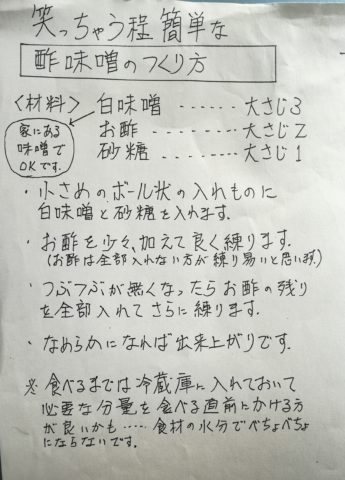 笑っちゃう程簡単な
酢味噌のつくり方
〈材料〉 白味噌 ……… 大さじ3
家にある
味噌で
OKです。
お酢 ……… 大さじ2
砂糖 ……… 大さじ1
・小さめのボール状の入れものに
白味噌と砂糖を入れます。
・お酢を少々、加えて良く練ります。
(お酢は全部入れない方が練り易いと思い〼)
・つぶつぶが無くなったらお酢の残り
を全部入れてさらに練ります。
・なめらかになれば出来上がりです。
※食べるまでは冷蔵庫に入れておいて
必要な分量を食べる直前にかける方
が良いかも……食材の水分でべちょべちょ
にならないです。